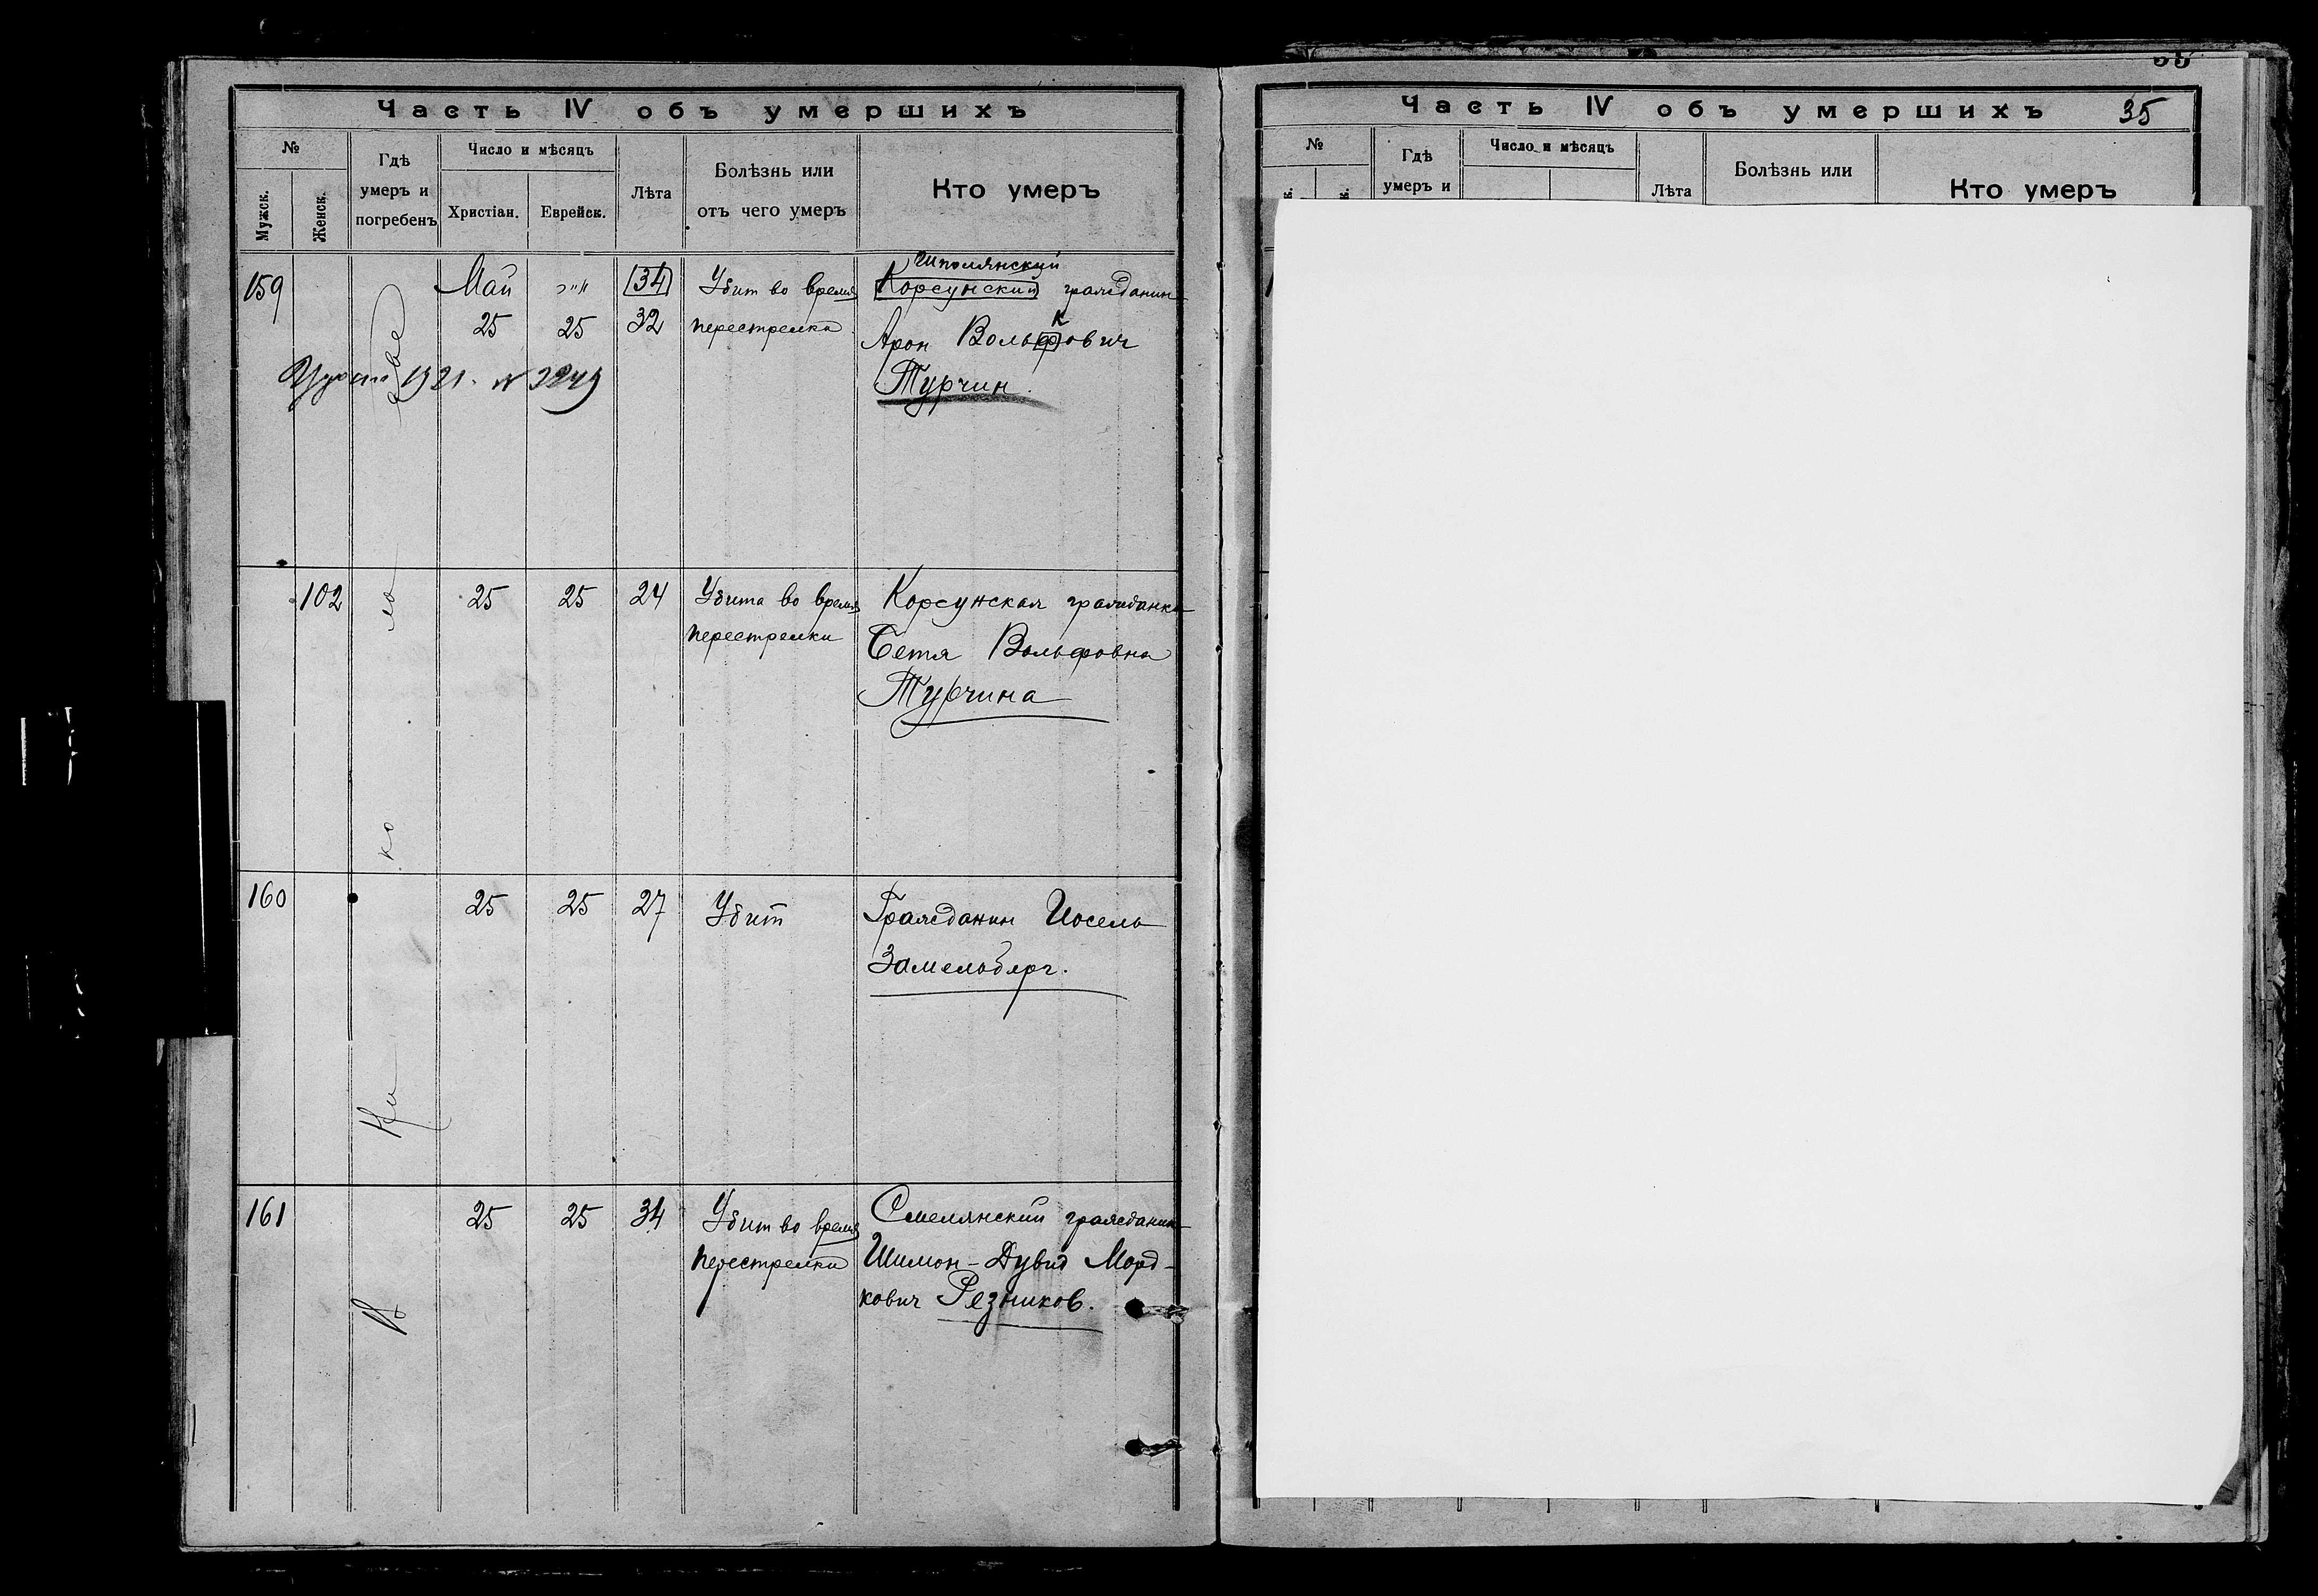 Часть IV объ умершихъ
№
Мужск.
Женск.
Гдѣ
умеръ и
погребенъ
Число и мѣсяцъ
Христіан.
Еврейск.
Лѣта
Болѣзнь или
отъ чего умеръ
Кто умеръ
159
Май
25
25
34
32
Убит во время
перестрелки
Шполянский
Корсунский гражданин
к
Арон Вольфович
Турчин
1921. N 3249
102
25
25
24
Убита во время
перестрелки
Корсунская гражданка
Бетя Вольфовна
Турчина
160
25
25
27
Убит
Гражданин Иосель
Замельберг.
161
25
25
34
Убит во время
перестрелки
Смелянский гражданин
Шимон-Дувид Морд-
кович Резников.
В Ни ко ла еве
Часть IV объ умершихъ 35
№
Гдѣ
умеръ и
Число и мѣсяцъ
Лѣта
Болѣзнь или
Кто умеръ